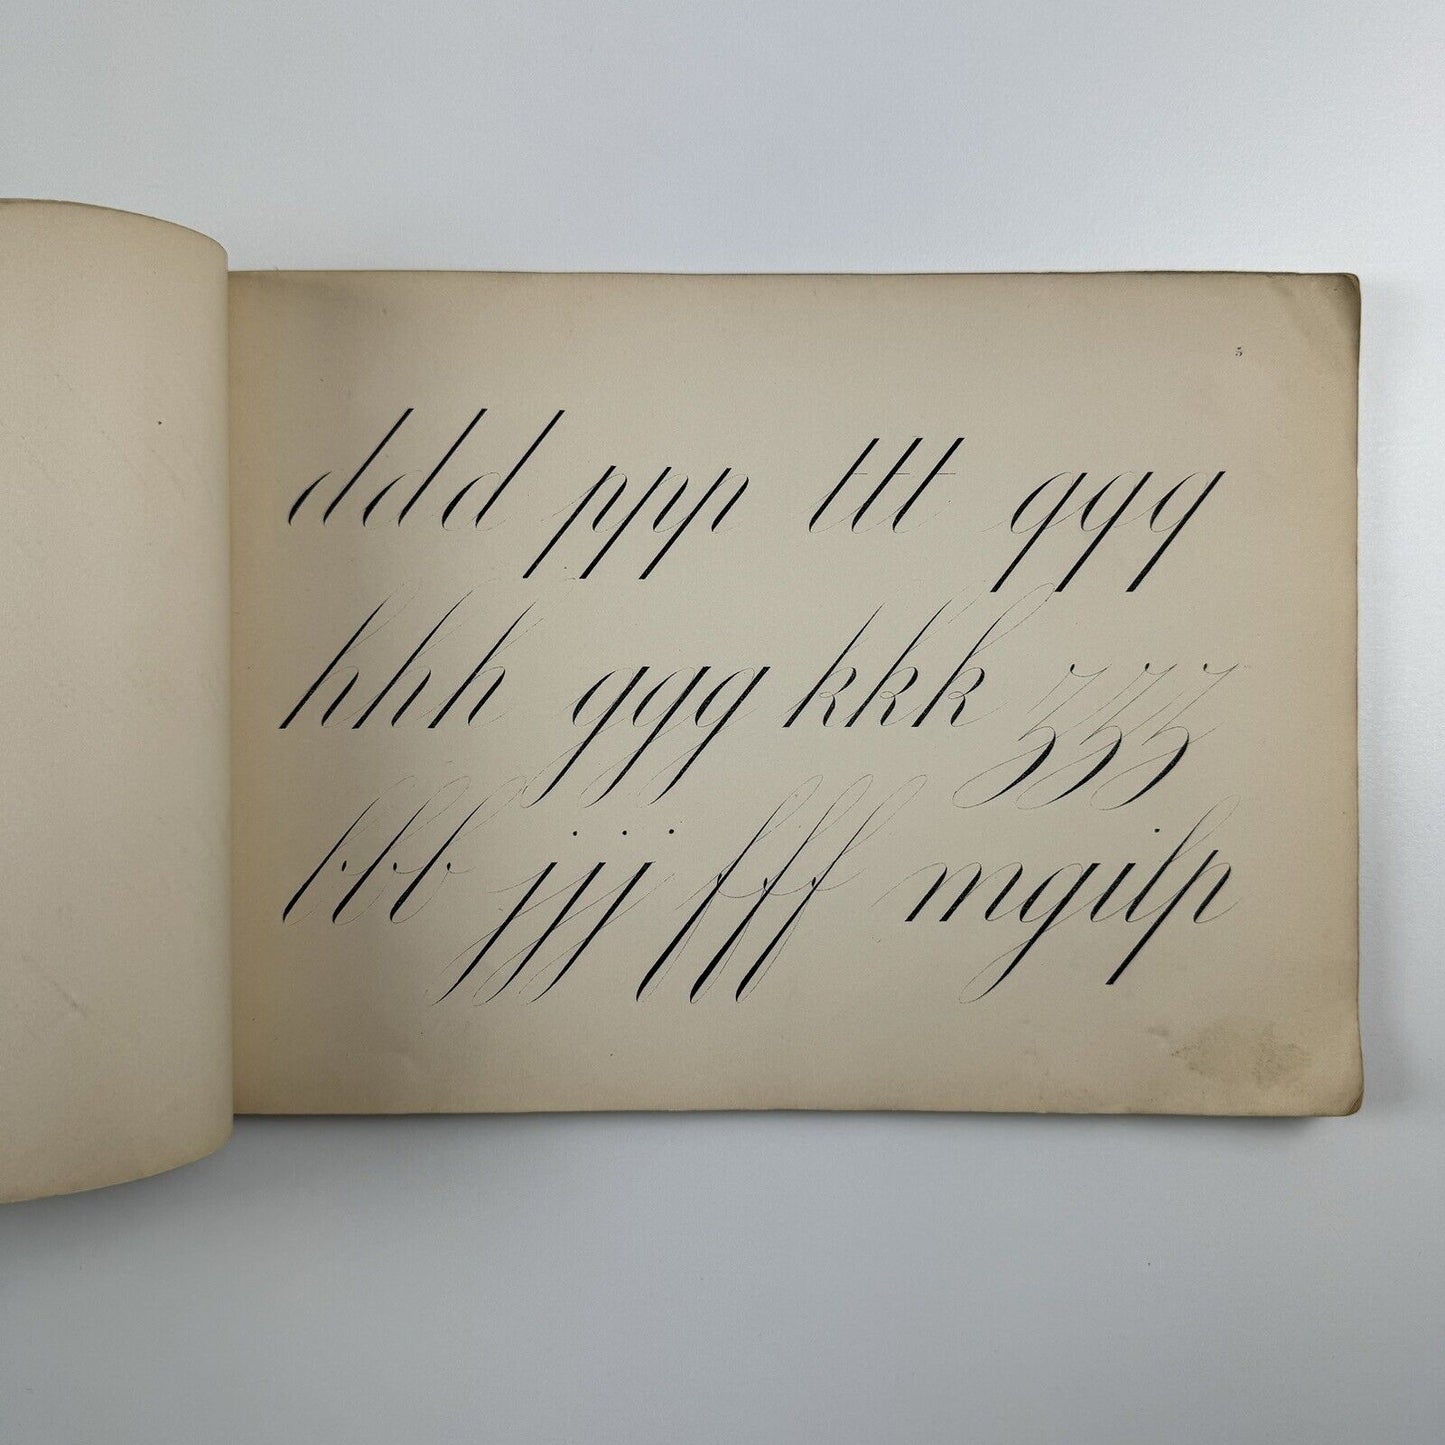 5
ddd ppp ttt qqq
hhh ggg kkk zzz
bbb jjj fff mgilp